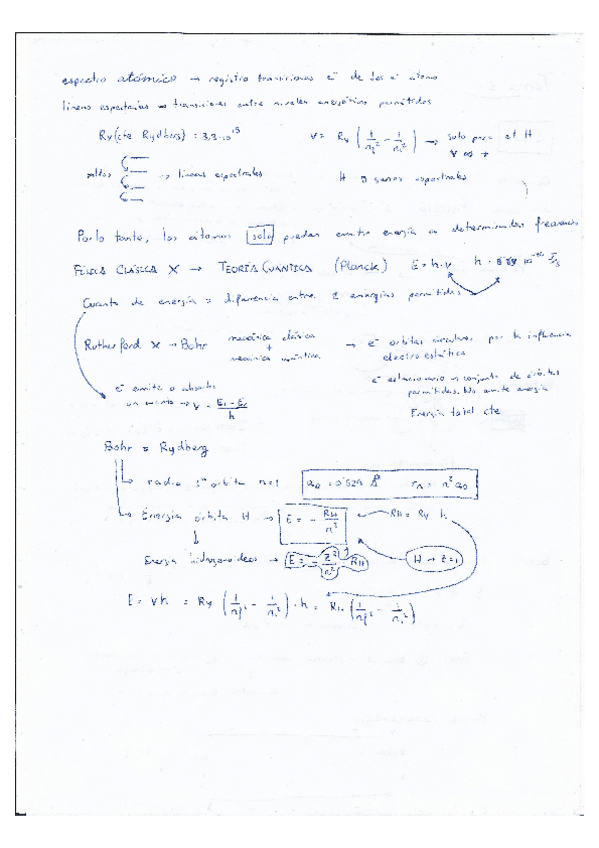 espectro atómico → registro transiciones e⁻ de los e⁻ átomo
líneas espectrales → transiciones entre niveles energéticos permitidos
Ry (cte Rydberg) = 3,3·10¹⁵ ν = Ry (1/n² - 1/n²) → solo para el H
saltos → líneas espectrales H series espectrales
Por lo tanto, los átomos solo pueden emitir energía a determinadas frecuencias
FÍSICA CLÁSICA X → TEORÍA CUÁNTICA (Planck) E = h·ν h =
Cuanto de energía = diferencia entre 2 energías permitidas
Rutherford X → Bohr mecánica clásica + mecánica cuántica → e⁻ orbitas circulares, por la influencia electroestática
e⁻ estacionario conjunto de órbitas permitidas. No emite energía
e⁻ emite o absorbe un cuanto → ν = E - E / h
Energía total cte
Bohr = Rydberg
radio 1ª orbita n=1 a₀ = 0'529 Å rₙ = n² a₀
Energía órbita H → E = - RH/n² RH = Ry h
Energía hidrogenoides → E = - Z²/n² RH H → Z=1
E = νh = Ry (1/n² - 1/n²) · h = RH (1/n² - 1/n²)